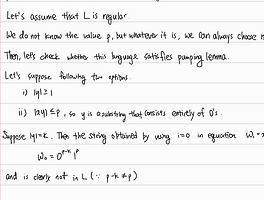 Let's assume that L is regular.
We do not know the value p, but whatever it is, we can always choose n
Then, let's check whether this language satisfies pumping lemma.
Let's suppose following two options.
i) |y|≥1
ii) |xy|≤p, so y is a substring that consists entirely of 0's.
Suppose |y|=k. Then the string obtained by using i=0 in equation Wᵢ=x
W₀ = 0ᵖ⁻ᵏ 1ᵖ
and is clearly not in L (∵ p-k≠p)